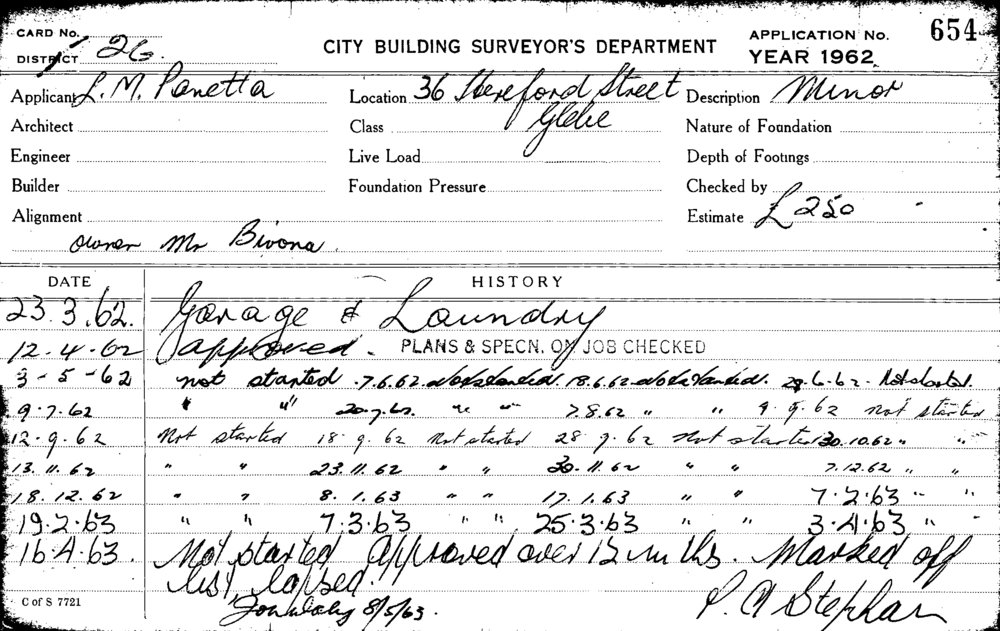 CARD No.
DISTRICT 26.
CITY BUILDING SURVEYOR'S DEPARTMENT
APPLICATION No. 654
YEAR 1962
Applicant L. M. Panetta
Location 36 Hereford Street
Glebe
Description Minor
Architect
Class
Nature of Foundation
Engineer
Live Load
Depth of Footings
Builder
Foundation Pressure
Checked by
Alignment
Estimate £250
owner Mr Bivona.
DATE HISTORY
23.3.62. Garage & Laundry
12.4.62 approved. PLANS & SPECN. ON JOB CHECKED
3-5-62 not started . 7.6.62. Not Started. 18.6.62. Not Started. 29.6.62. Not started.
9.7.62 " " 20.7.62. " " 7.8.62 " " 9.62 not started
12.9.62 Not started 18.9.62 Not started 28.9.62 Not started 30.10.62 " "
13.11.62 " " 23.11.62 " " 30.11.62 " " 7.12.62 " "
18.12.62 " " 8.1.63 " " 17.1.63 " " 7.2.63 " "
19.2.63 " " 7.3.63 " " 25.3.63 " " 3.4.63 " "
16.4.63. Not started Approved over 12 mths. Marked off
list, lapsed.
8/5/63.
Stephan
C of S 7721